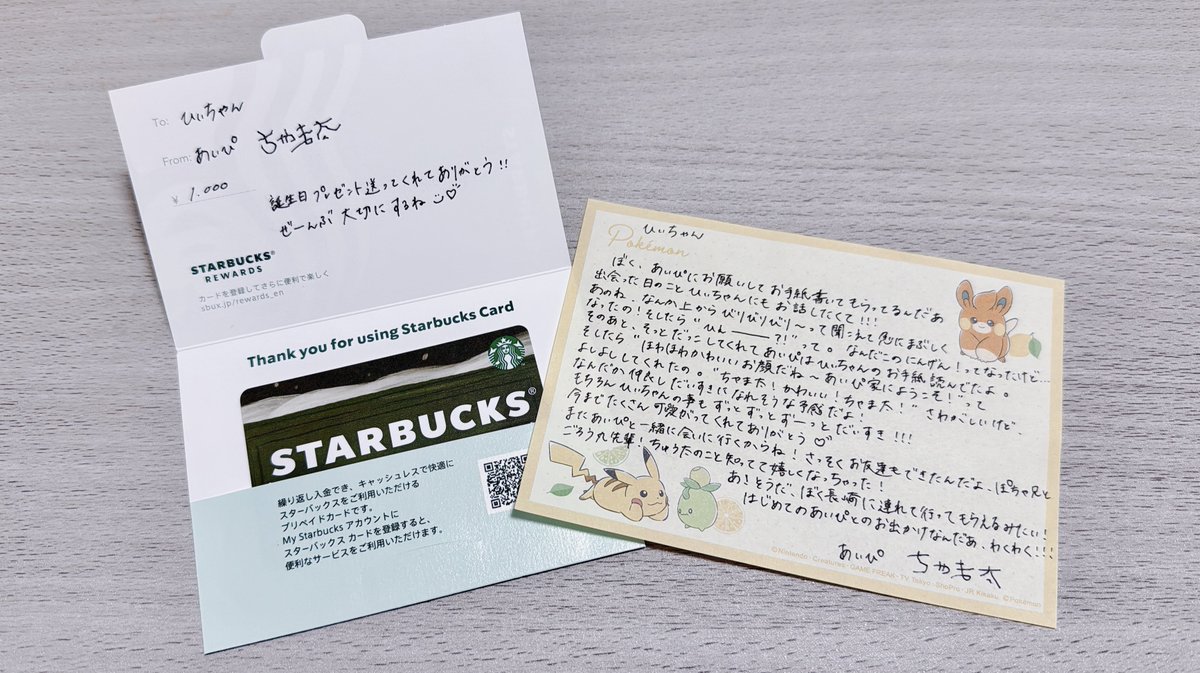 To: ひぃちゃん
From: あいぴ ちゃま太
¥ 1,000
誕生日プレゼント送ってくれてありがとう!!
ぜーんぶ大切にするね
STARBUCKS®
REWARDS
カードを登録してさらに便利で楽しく
sbux.jp/rewards_en
Thank you for using Starbucks Card
STARBUCKS®
繰り返し入金でき、キャッシュレスで快適に
スターバックスをご利用いただける
プリペイドカードです。
My Starbucks アカウントに
スターバックス カードを登録すると、
便利なサービスをご利用いただけます。
ひぃちゃん
Pokémon
ぼく、あいぴにお願いしてお手紙書いてもらってるんだあ
出会った日のことひぃちゃんにもお話したくて!!!
あのね、なんか上からびりびりびり〜って聞こえて急にまぶしく
なったの!そしたら"ひん———?!"って。なんだこのにんげん!ってなったけど…
そのあと、そっとだっこしてくれてあいぴはひぃちゃんのお手紙読んでたよ。
そしたら"ほわほわかわいいお顔だね〜あいぴ家にようこそ!"って
よしよししてくれたの。"ちゃま太!かわいい!ちゃま太!"さわがしいけど、
なんだか仲良しだいすきになれそうな予感だよ。
もちろんひぃちゃんの事もずっとずっとずーっとだいすき!!!
今までたくさん可愛がってくれてありがとう♡
またあいぴと一緒に会いに行くからね!さっそくお友達もできたんだよ、ぽちゃ兄と
ごろう丸先輩!ちゅうたのこと知ってて嬉しくなっちゃった!
あきそうだ、ぼく長崎に連れて行ってもらえるみたい!
はじめてのあいぴとのお出かけなんだあ、わくわく!!!
あいぴ ちゃま太
©Nintendo・Creatures・GAME FREAK・TV Tokyo・ShoPro・JR Kikaku ©Pokémon